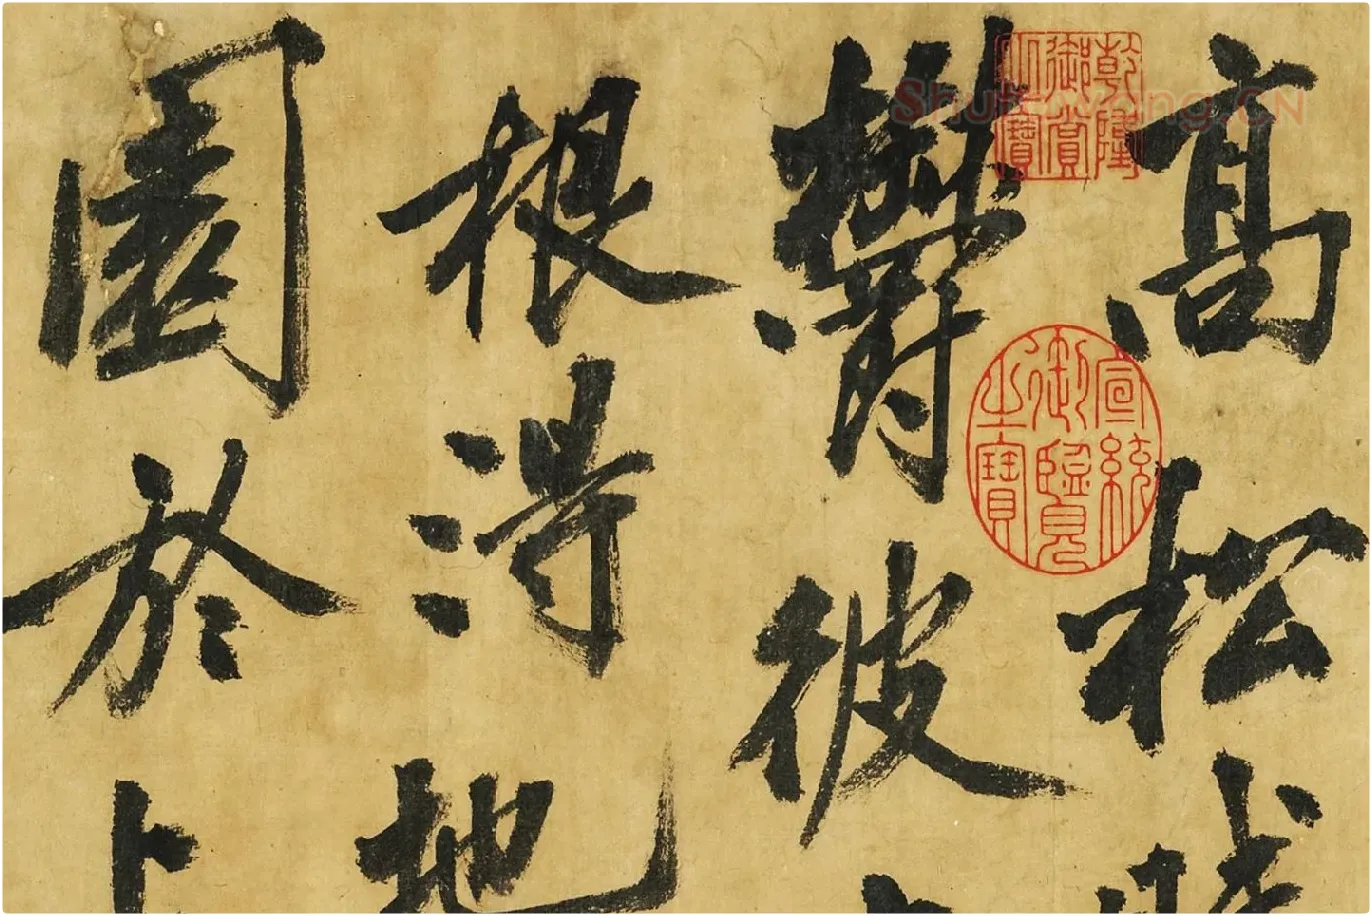 高松
鬱彼
根得地
園於
乾隆御賞之寶
宣統御覽之寶
Shufawang.CN